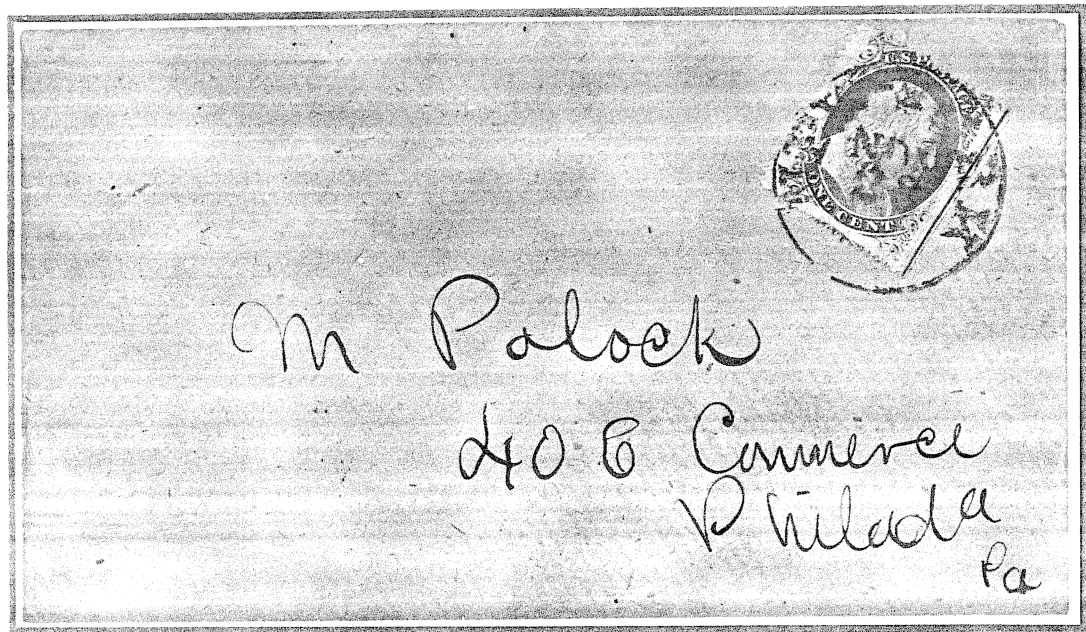 U.S. POSTAGE
ONE CENT
M Polock
406 Commerce
Philada
Pa